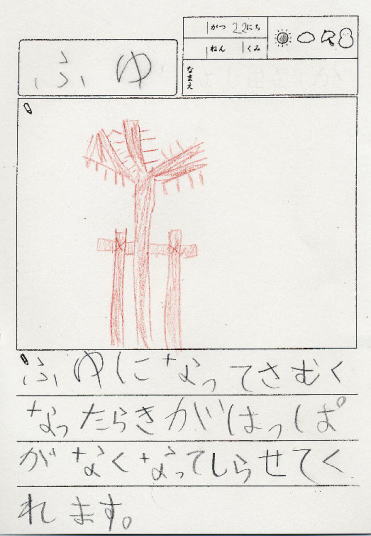 1がつ 22にち
1ねん 1くみ
なまえ
ふゆ
ふゆになってさむく
なったらきがはっぱ
がなくなってしらせてく
れます。